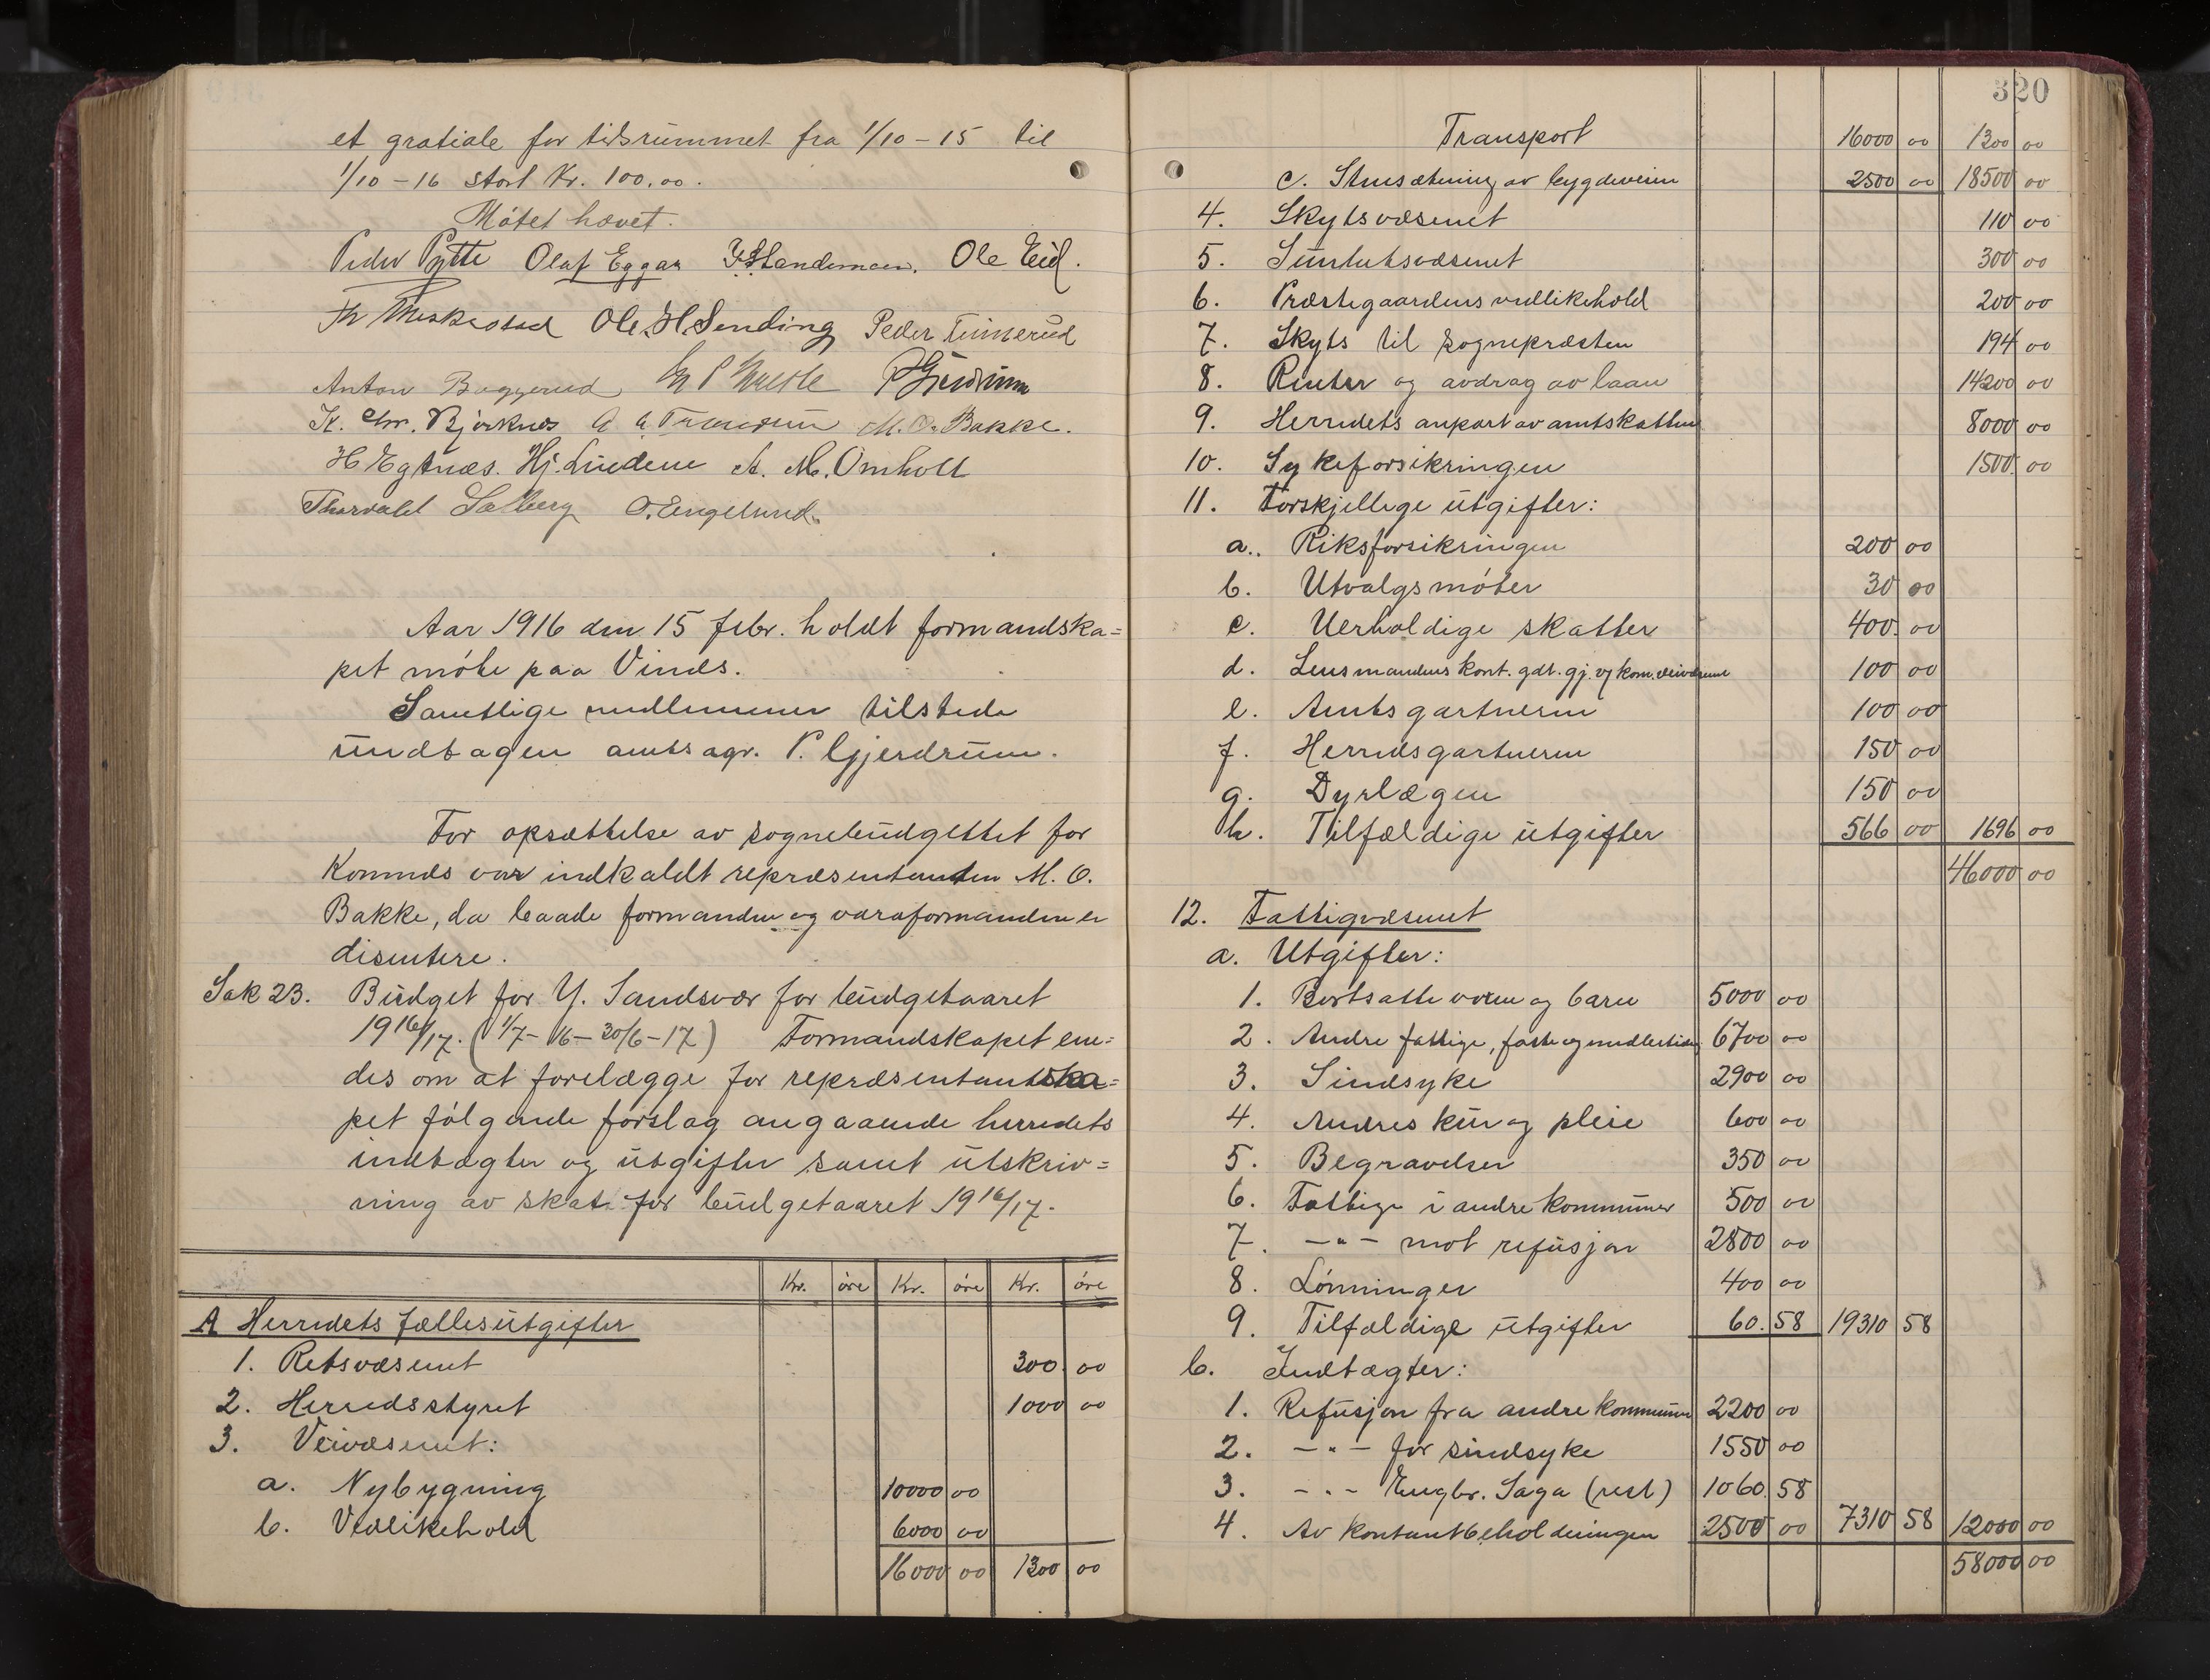 et gratiale for tidsrummet fra 1/10 - 15 til
1/10 - 16 stort Kr. 100.00.
Møtet hævet.
Peder Pytte Olaf Eggar Ole Eid.
Ole H Sending Peder Teinserud
Anton Baggerud
K. Chr. Bjørknes M. O. Bakke.
H Egtnæs. Hj. Lindem A. M. Omholt
Thorvald Solberg O. Engelund.
Aar 1916 den 15 febr. holdt formandska=
pet møte paa Vinds.
Samtlige medlemmer tilstede
undtagen amtsagr. P. Gjerdrum.
For opsættelse av sognebudgettet for
Komnes var indkaldt repræsentanten M. O.
Bakke, da baade formanden og varaformanden er
disentere.
Sak 23. Budget for Y. Sandsvær for budgetaaret
1916/17. (1/7-16-30/6-17) Formandskapet ene=
des om at forelægge for repræsentantska=
pet følgende forslag angaaende herredets
indtægter og utgifter samt utskriv=
ning av skat for budgetaaret 1916/17.
Kr. øre Kr. øre Kr. øre
A Herredets fællesutgifter
1. Retsvæsenet 300 00
2. Herredsstyret 1000 00
3. Veivæsenet:
a. Nybygning 10000 00
b. Vedlikehold 6000 00
16000 00 1300 00
320
Transport 16000 00 1300 00
c. Stensætning av bygdeveien 2500 00 18500 00
4. Skytsvæsenet 110 00
5. Sundhetsvæsenet 300 00
6. Præstegaardens vedlikehold 200 00
7. Skyts til sognepræsten 194 00
8. Renter og avdrag av laan 14200 00
9. Herredets anpart av amtskatten 8000 00
10. Sykeforsikringen 1500 00
11. Forskjellige utgifter:
a. Riksforsikringen 200 00
b. Utvalgsmøter 30 00
c. Uerholdige skatter 400 00
d. Lensmandens kont. gdt. gj. vf kom. veivæsene 100 00
e. Amtsgartneren 100 00
f. Herredsgartneren 150 00
g. Dyrlægen 150 00
h. Tilfældige utgifter 566 00 1696 00
46000 00
12. Fattigvæsenet
a. Utgifter:
1. Bortsatte voxne og barn 5000 00
2. Andre fattige, faste og midlertidig 6700 00
3. Sindsyke 2900 00
4. Andres kur og pleie 600 00
5. Begravelser 350 00
6. Fattige i andre kommuner 500 00
7. -"- mot refusjon 2800 00
8. Lønninger 400 00
9. Tilfældige utgifter 60.58 19310 58
b. Indtægter:
1. Refusjon fra andre kommuner 2200 00
2. -"- for sindsyke 1550 00
3. -"- Engbr. Saga (rest) 1060.58
4. Av kontantbeholdningen 2500 00 7310 58 12000 00
58000 00